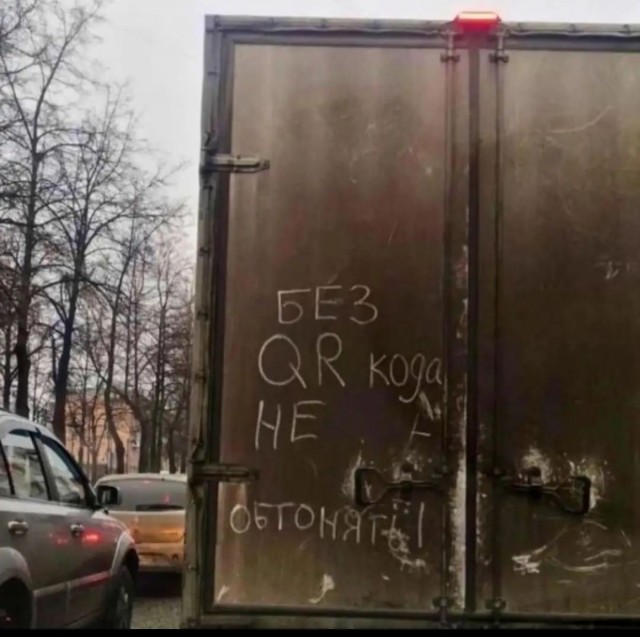 БЕЗ
QR кода
НЕ
ОБГОНЯТЬ!